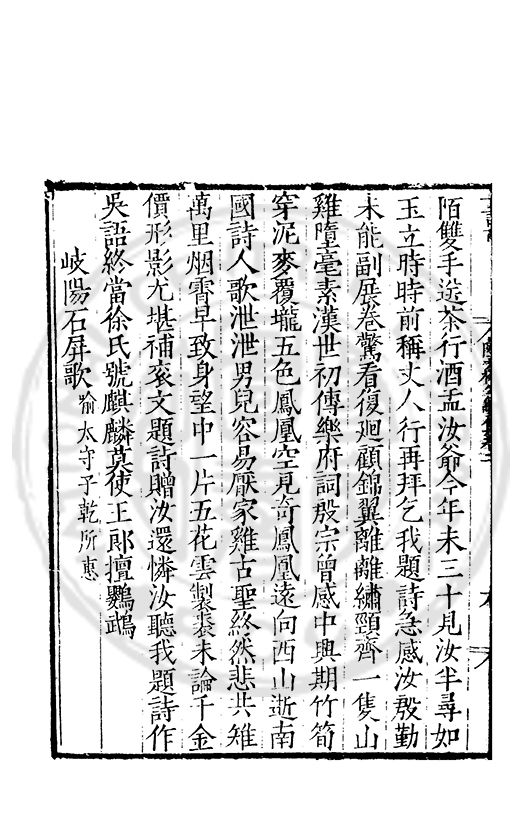 陌雙手送茶行酒盂汝爺今年未三十見汝半尋如
玉立時時前稱丈人行再拜乞我題詩急感汝殷勤
未能副展卷驚看復廻顧錦翼離離繡頸齊一隻山
雞墮毫素漢世初傳樂府詞殷宗曾感中興期竹筍
穿泥麥覆壠五色鳳凰空見奇鳳凰遠向西山逝南
國詩人歌泄泄男兒容易厭家雞古聖終然悲共雉
萬里烟霄早致身望中一片五花雲製裘未論千金
價形影尤堪補袞文題詩贈汝還憐汝聽我題詩作
吳語終當徐氏號麒麟莫使王郎擅鸚鵡
岐陽石屏歌喻太守子乾所惠